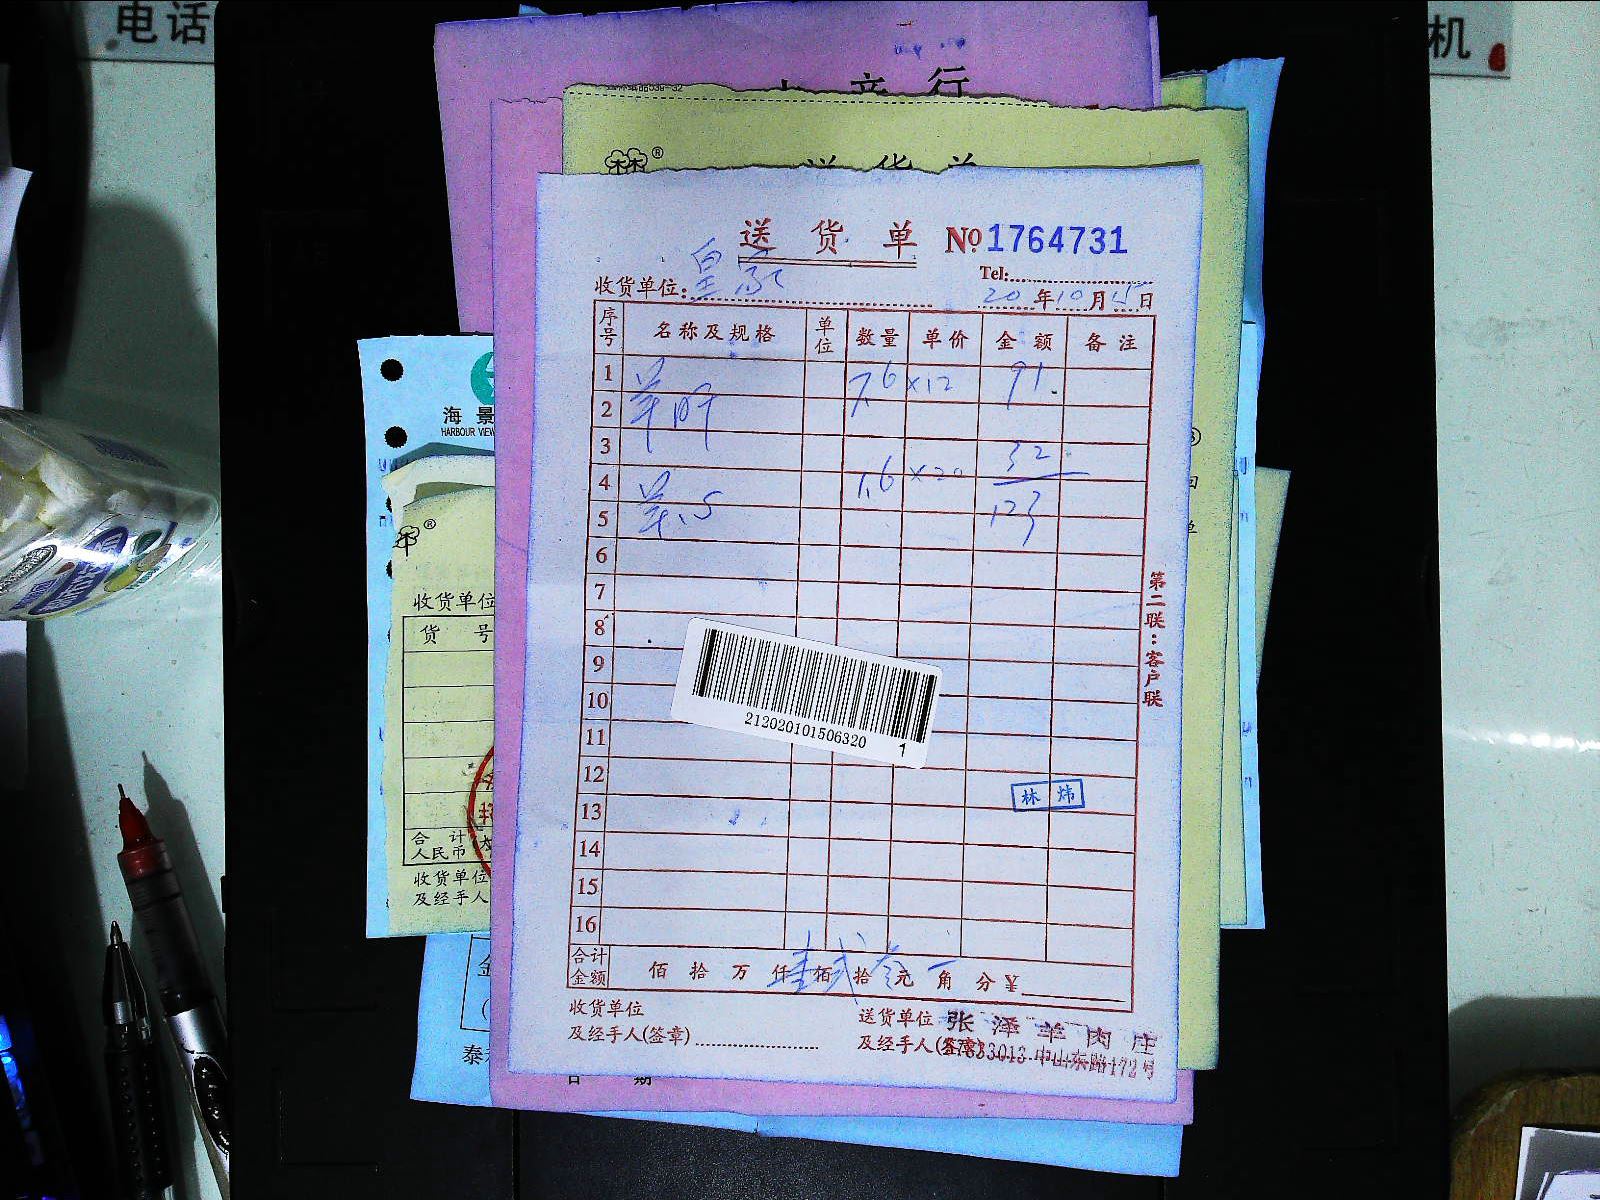 电话
机
行
送货单
海景
HARBOUR VIEW
收货单位
货 号
合 计
人民币
收货单位
及经手人
送 货 单 № 1764731
Tel:
收货单位: 皇家
20 年 10 月 15 日
序号 名称及规格 单位 数量 单价 金额 备注
1 羊肝 7.6 ×12 91.
2
3 32
4 羊心 1.6 ×20
5 123
6
7
8
9
10
11
12
13
14
15
16
第二联:客户联
212020101506320 1
林 炜
合计金额 佰 拾 万 仟 壹 佰 贰 拾 叁 元 角 分 ¥
收货单位
及经手人(签章)
送货单位 张泽羊肉庄
及经手人(签章) 中山东路172号